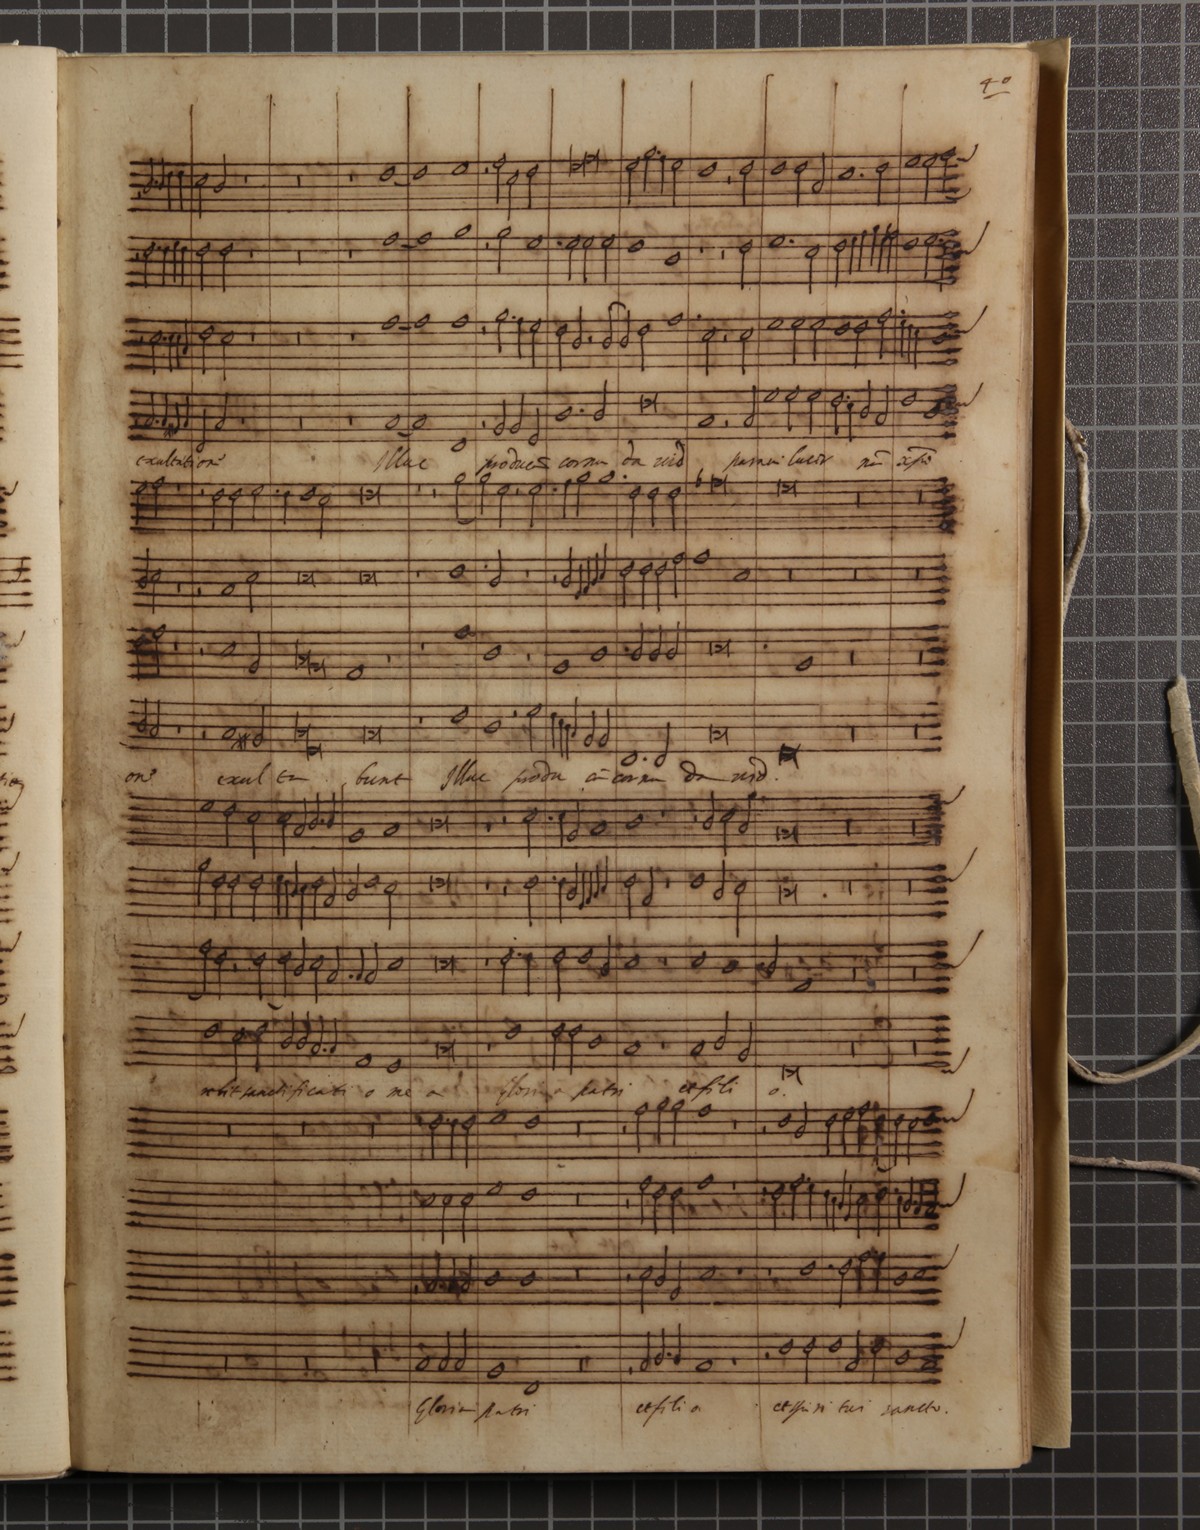 40
exultatione Illuc producã cornu david paravi lucer nã xpõ
one exulta bunt Illuc produ cã cornu da vid.
sanctificati o me a gloria patri et fili o.
Gloria patri et fili o et spiri tui sancto.